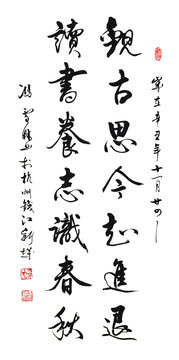 觀古思今知進退
讀書養志識春秋
歲在辛丑年十一月廿四
於杭州錢江新城